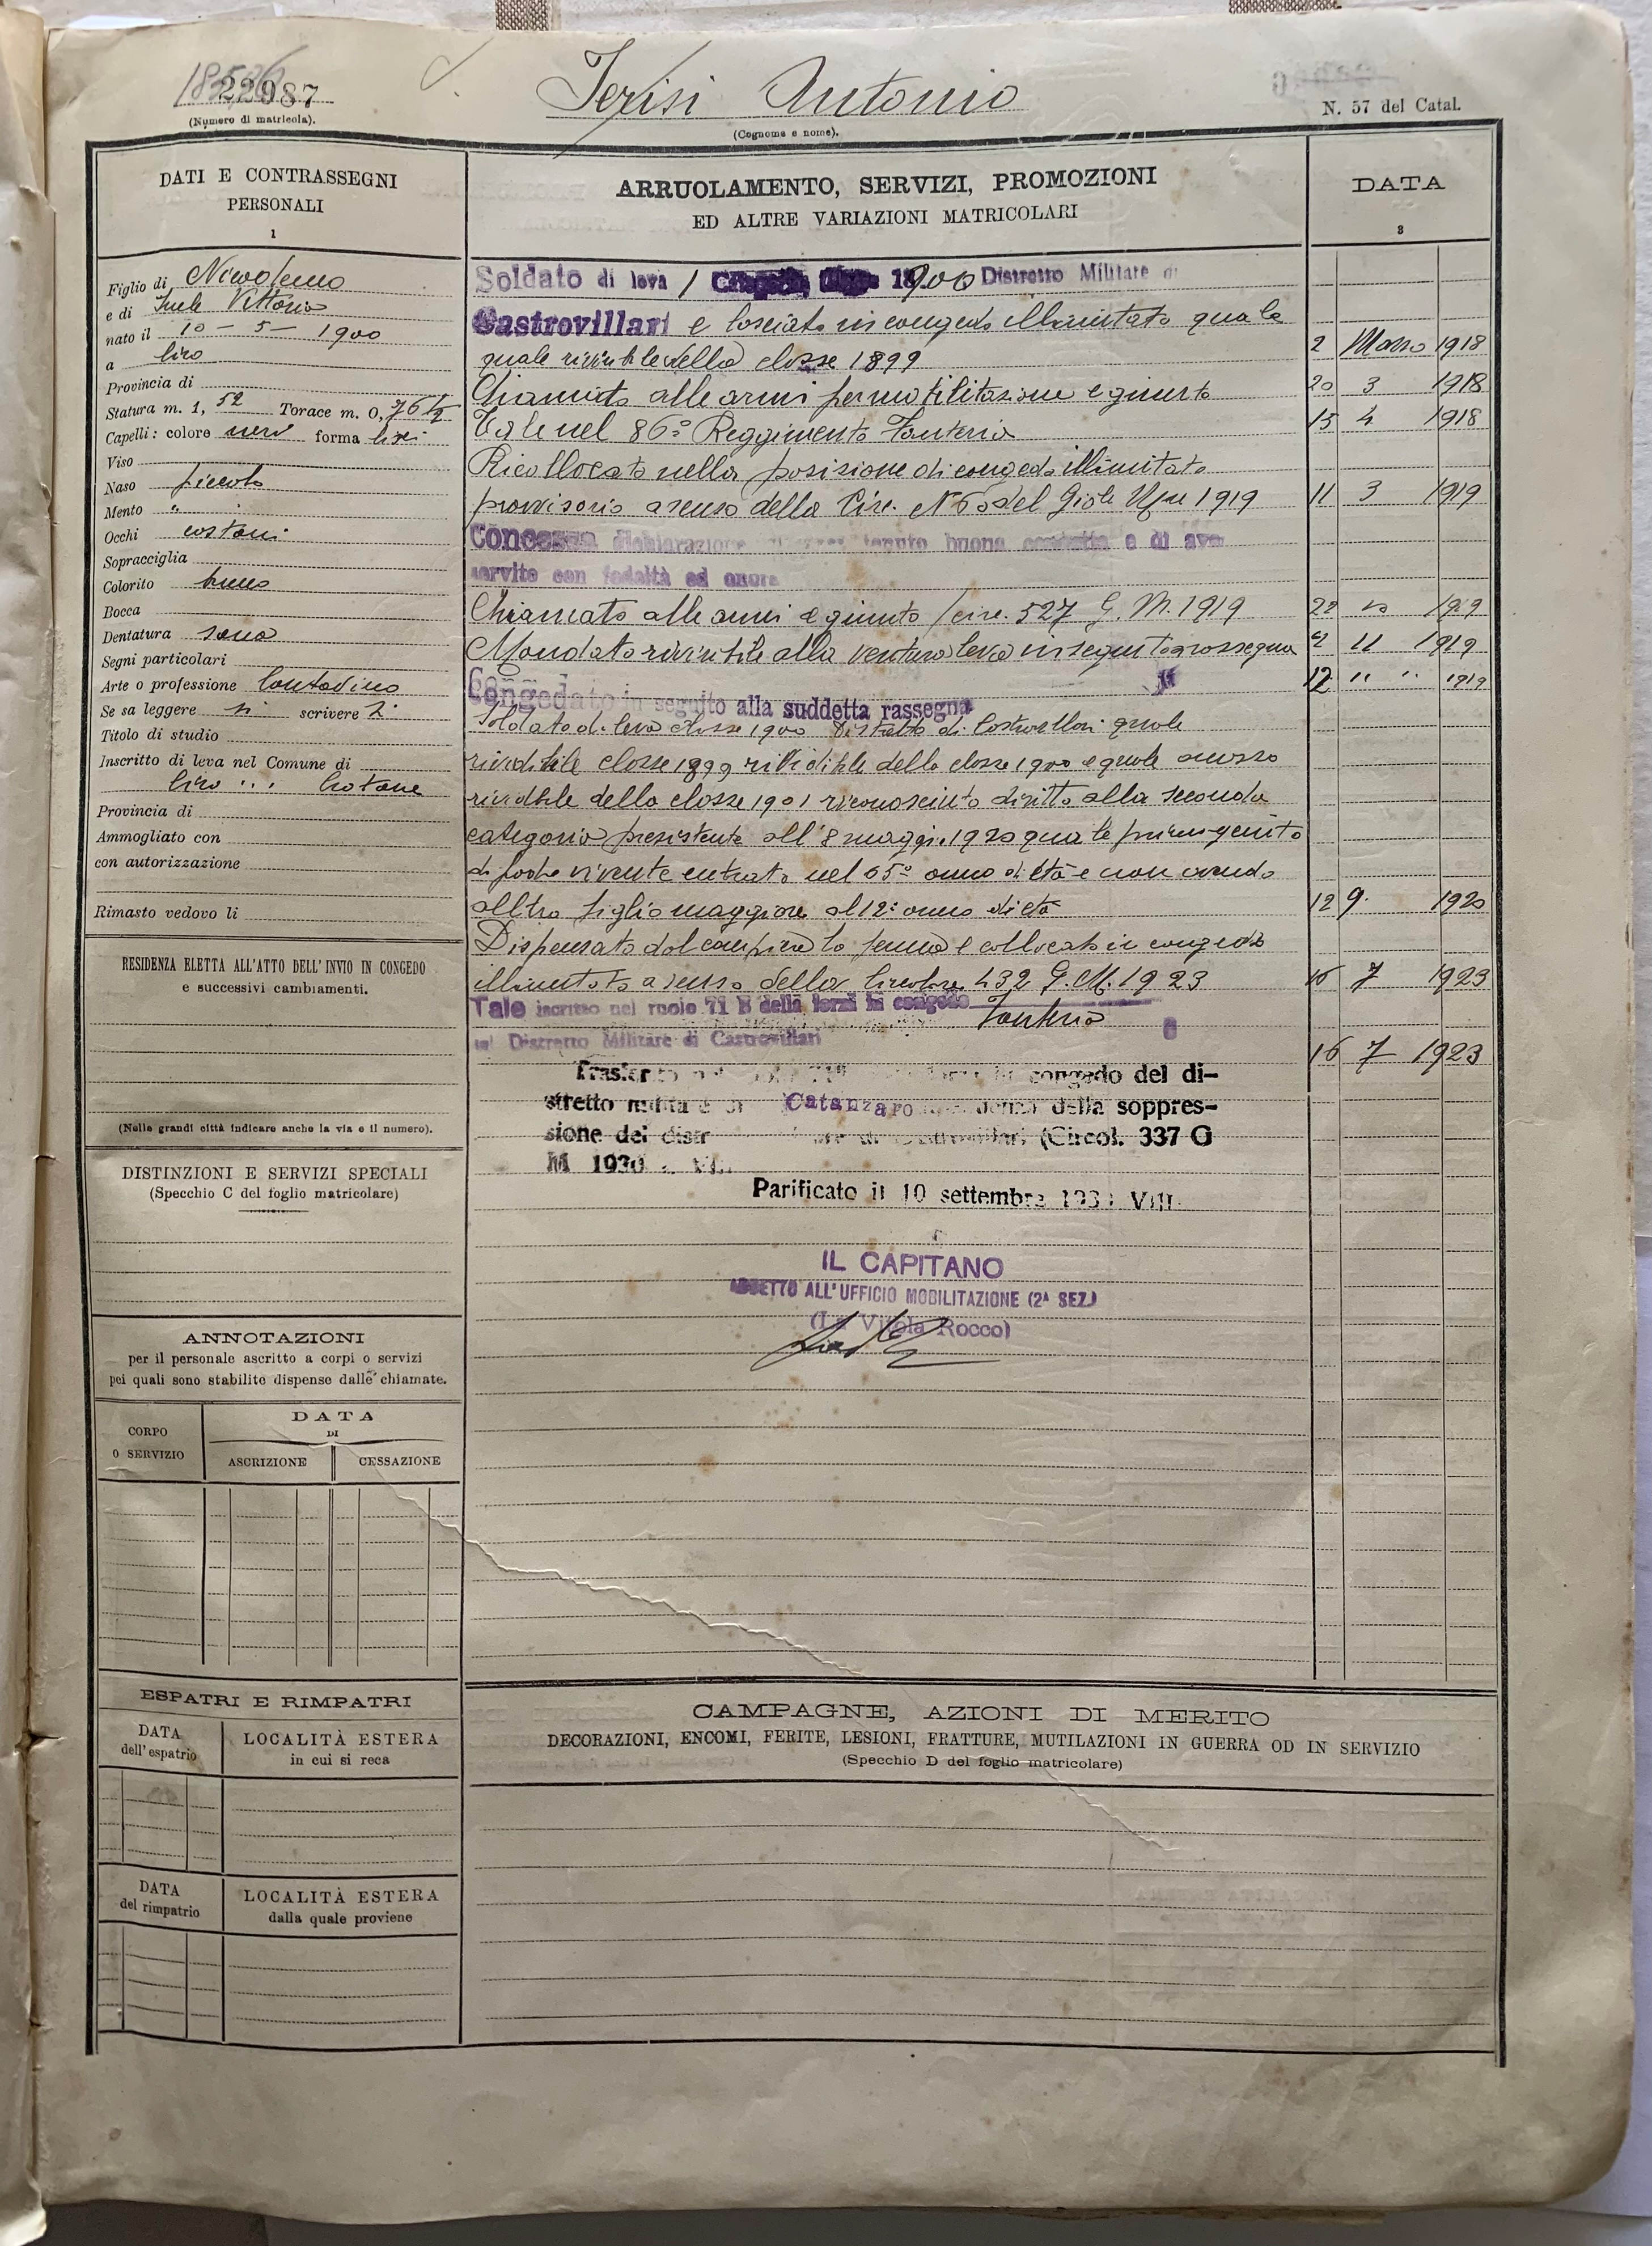 22987
(Numero di matricola).
Antonio
(Cognome e nome).
N. 57 del Catal.
DATI E CONTRASSEGNI
PERSONALI
1
Figlio di Nicodemo
e di Vittoria
nato il 10 - 5 - 1900
a Ciro
Provincia di
Statura m. 1, 52 Torace m. 0, 76 1/2
Capelli: colore neri forma lisci
Viso
Naso piccolo
Mento "
Occhi castani
Sopracciglia
Colorito bruno
Bocca
Dentatura sana
Segni particolari
Arte o professione Contadino
Se sa leggere si scrivere si
Titolo di studio
Inscritto di leva nel Comune di
Ciro Cotrone
Provincia di
Ammogliato con
con autorizzazione
Rimasto vedovo li
RESIDENZA ELETTA ALL'ATTO DELL'INVIO IN CONGEDO
e successivi cambiamenti.
(Nelle grandi città indicare anche la via e il numero).
DISTINZIONI E SERVIZI SPECIALI
(Specchio C del foglio matricolare)
ANNOTAZIONI
per il personale ascritto a corpi o servizi
pei quali sono stabilite dispense dalle chiamate.
CORPO
O SERVIZIO
DATA
DI
ASCRIZIONE
CESSAZIONE
ESPATRI E RIMPATRI
DATA
dell'espatrio
LOCALITÀ ESTERA
in cui si reca
DATA
del rimpatrio
LOCALITÀ ESTERA
dalla quale proviene
ARRUOLAMENTO, SERVIZI, PROMOZIONI
ED ALTRE VARIAZIONI MATRICOLARI
DATA
3
Soldato di leva 1 1900 Distretto Militare di
Castrovillari e lasciato in congedo illimitato quale
quale rivedibile della classe 1899 2 Marzo 1918
Chiamato alle armi per mobilitazione e giunto 20 3 1918
Tale nel 86° Reggimento Fanteria 15 4 1918
Ricollocato nella posizione di congedo illimitato
provvisorio a senso della Circ. del 1919 11 3 1919
Concessa dichiarazione di aver tenuto buona condotta e di aver
servito con fedeltà ed onore
Chiamato alle armi e giunto circ. 527 G. M. 1919 22 10 1919
Mandato rivedibile alla ventura leva in seguito a rassegna 11 1919
Congedato in seguito alla suddetta rassegna 12 " " 1919
Soldato di leva classe 1900 Distretto di Castrovillari quale
rivedibile classe 1899 rividibile della classe 1900 e quale
rividibile della classe 1901 riconosciuto diritto alla seconda
categoria presistente all'8 maggio 1920 quale primogenito
di padre vivente entrato nel 65° anno di età e non avendo
altro figlio maggiore al 12° anno di età 12 9 1920
Dispensato dal compiere la ferma e collocato in congedo
illimitato a senso della Circolare 432 G. M. 1923 16 7 1923
Tale iscritto nel ruolo 71 B della forza in congedo Fanteria
del Distretto Militare di Castrovillari 16 7 1923
congedo del di-
stretto militare di Catanzaro della soppres-
sione dei distr Castrovillari (Circol. 337 G
M 1930
Parificato il 10 settembre VIII
IL CAPITANO
ADDETTO ALL'UFFICIO MOBILITAZIONE (2ª SEZ.)
(La Vitola Rocco)
CAMPAGNE, AZIONI DI MERITO
DECORAZIONI, ENCOMI, FERITE, LESIONI, FRATTURE, MUTILAZIONI IN GUERRA OD IN SERVIZIO
(Specchio D del foglio matricolare)